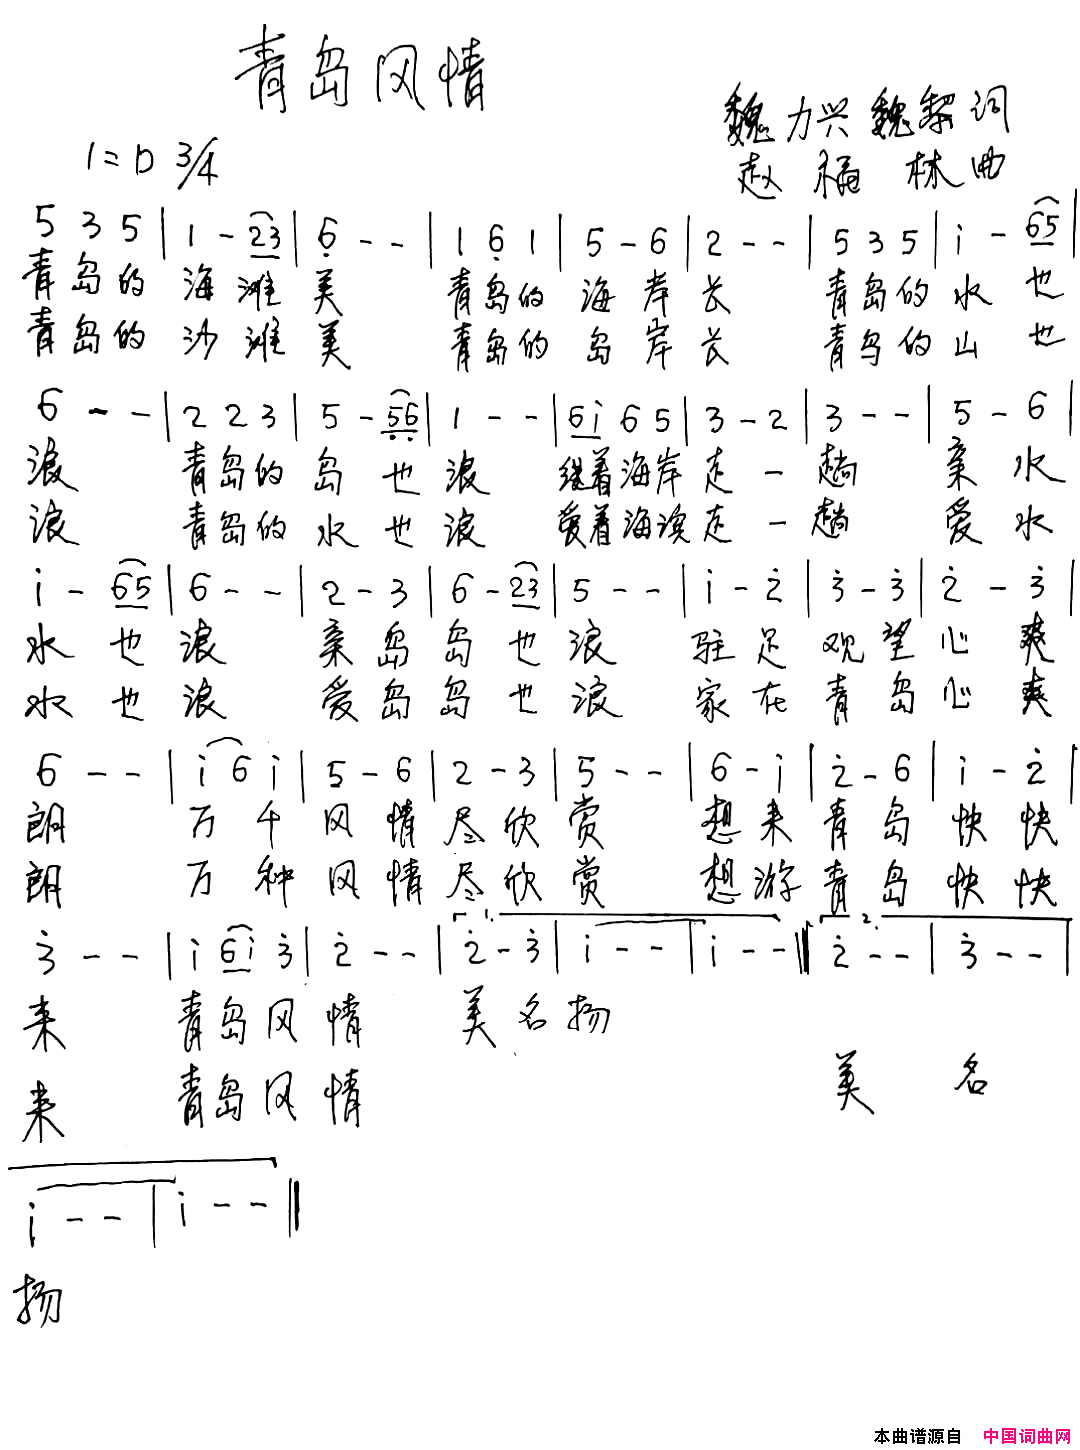 青岛风情
魏力兴 魏黎 词
1=D 3/4
赵福林 曲
5 3 5 | 1 - 23 | 6 - - | 1 6 1 | 5 - 6 | 2 - - | 5 3 5 | i - 65 |
青岛的 海滩 美 青岛的 海岸 长 青岛的 水 也
青岛的 沙滩 美 青岛的 岛岸 长 青岛的 山 也
6 - - | 2 2 3 | 5 - 56 | 1 - - | 6i 6 5 | 3 - 2 | 3 - - | 5 - 6 |
浪 青岛的 岛 也 浪 绕着海岸 走 一 趟 亲 水
浪 青岛的 水 也 浪 爱着海滨 走 一 趟 爱 水
i - 65 | 6 - - | 2 - 3 | 6 - 23 | 5 - - | i - 2 | 3 - 3 | 2 - 3 |
水 也 浪 亲 岛 岛 也 浪 驻 足 观 望 心 爽
水 也 浪 爱 岛 岛 也 浪 家 在 青 岛 心 爽
6 - - | i 6 i | 5 - 6 | 2 - 3 | 5 - - | 6 - i | 2 - 6 | i - 2 |
朗 万 千 风 情 尽 欣 赏 想 来 青 岛 快 快
朗 万 种 风 情 尽 欣 赏 想 游 青 岛 快 快
1. 2.
3 - - | i 6i 3 | 2 - - | 2 - 3 | i - - | i - - || 2 - - | 3 - - |
来 青岛风 情 美 名 扬
美 名
来 青岛风 情
i - - | i - - ||
扬
本曲谱源自 中国词曲网